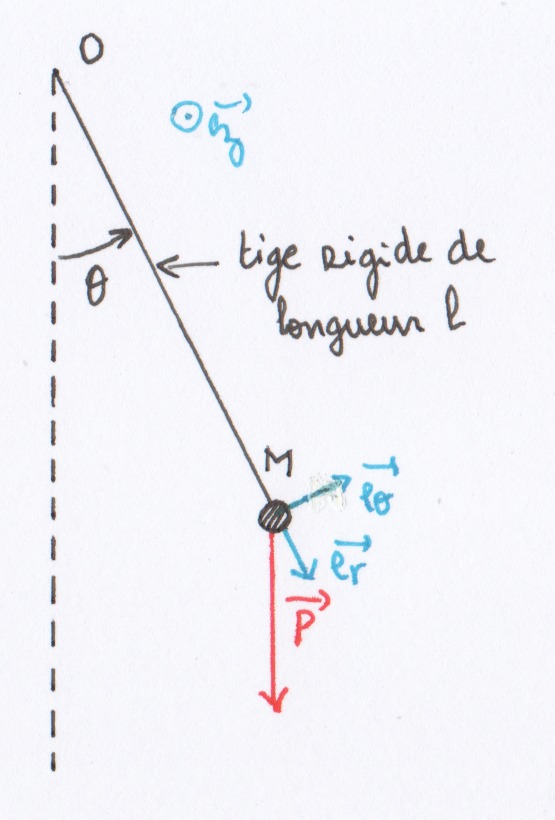 O
e⃗z
tige rigide de
longueur l
θ
M
e⃗θ
e⃗r
P⃗